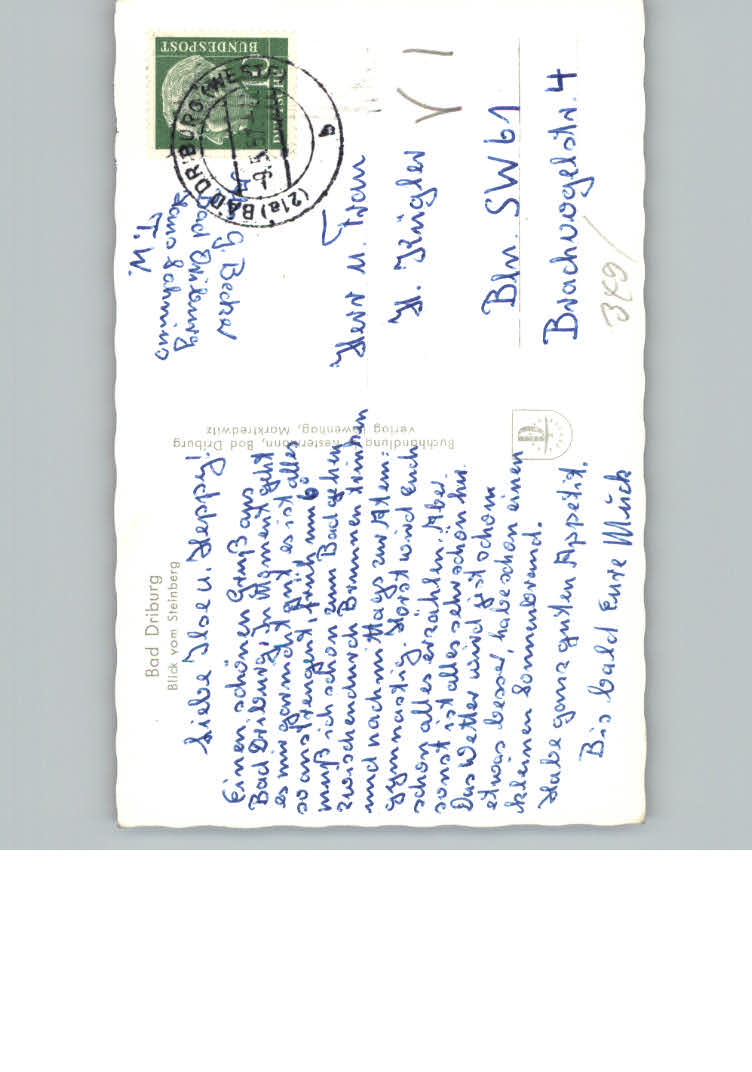 Bad Driburg
Blick vom Steinberg
Liebe Ilse u. Heppy!
Einen schönen Gruß aus
Bad Driburg, im Moment geht
es mir garnicht gut es ist alles
so anstrengent, früh um 6°
muß ich schon zum Bad gehen
zwischendurch Brunnen trinken
und nachmittags zur Atem:
gymnastig. Horst wird Euch
schon alles erzählen. Aber
sonst ist alles sehr schön hir.
Das Wetter wird jetzt schon
etwas besser, habe schon einen
kleinen Sonnenbrand.
Habe ganz guten Appetit.
Bis bald Eure Mück
Buchhandlung Kestermann, Bad Driburg
verlag Löwenhag, Marktredwitz
G. Becker
Bad Driburg
M.T.
DEUTSCHE
BUNDESPOST
10
(21a) BAD DRIBURG (WESTF)
b
Herr u. Frau
H. Krügler
Bln. SW 61
Brachvogelstr. 4
349/